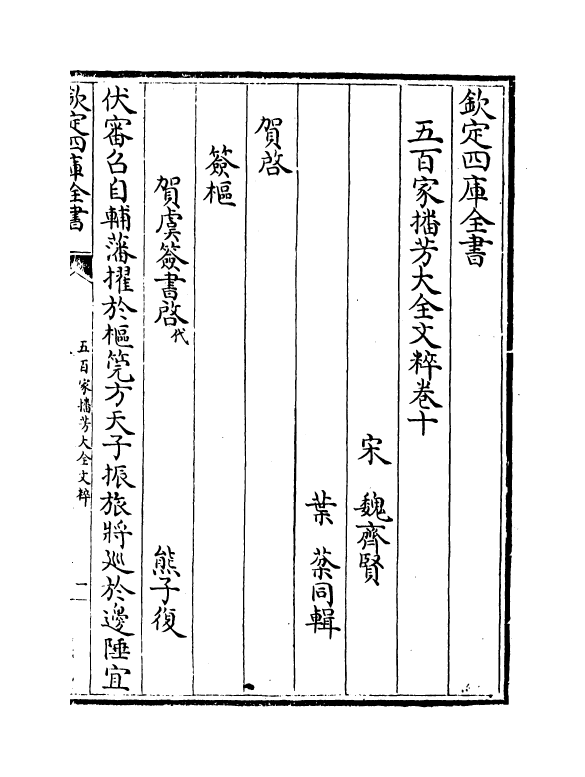 欽定四庫全書
五百家播芳大全文粹卷十
宋 魏齊賢
葉棻同輯
賀啓
簽樞
賀虞簽書啓代 熊子復
伏審召自輔藩擢於樞筦方天子振旅將巡於邊陲宜
欽定四庫全書
五百家播芳大全文粹